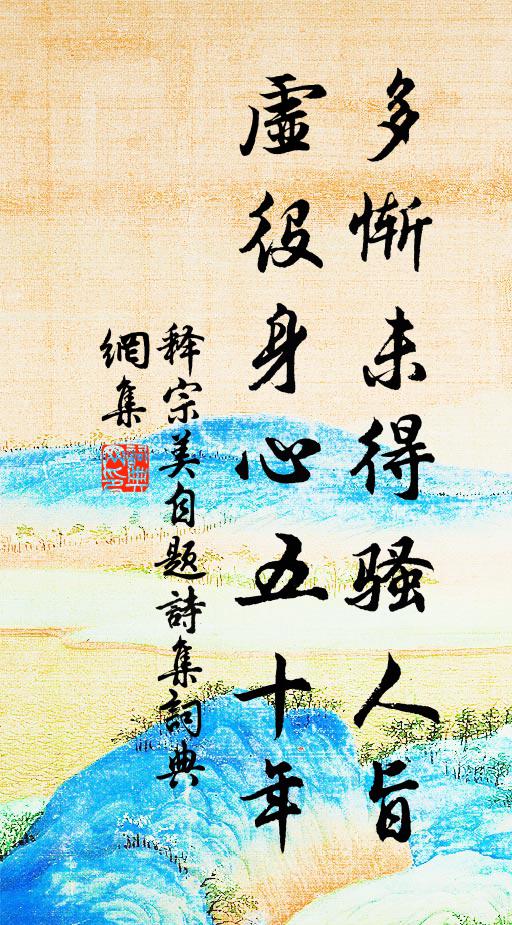 多惭未得骚人旨
虛役身心五十年
释宗美自题詩集詞典
網集